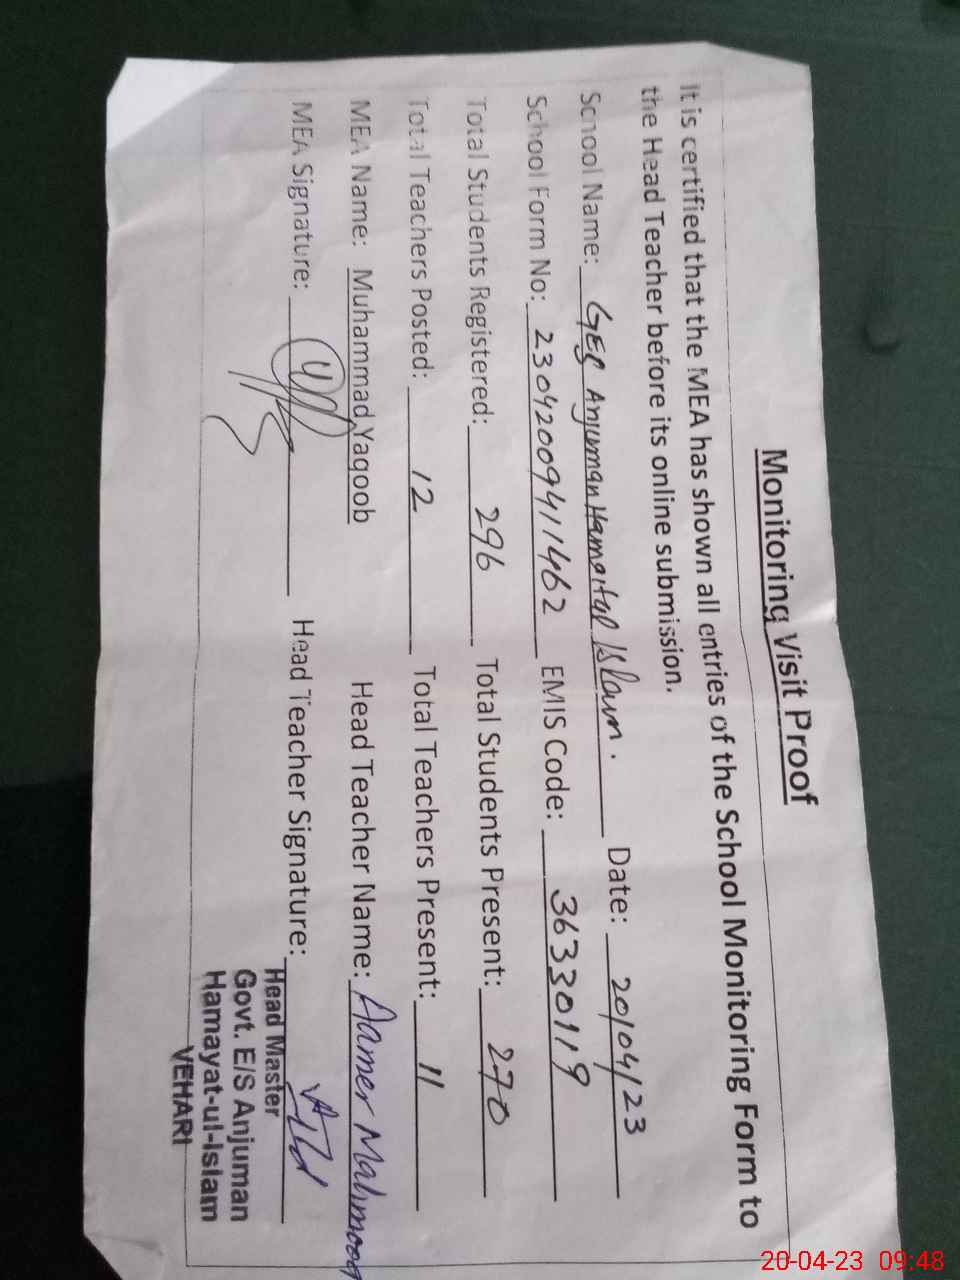 Monitoring Visit Proof
It is certified that the MEA has shown all entries of the School Monitoring Form to
the Head Teacher before its online submission.
School Name: GES Anjuman Hamaitul Islam. Date: 20/04/23
School Form No: 23042009411462 EMIS Code: 36330119
Total Students Registered: 296 Total Students Present: 270
Total Teachers Posted: 12 Total Teachers Present: 11
MEA Name: Muhammad Yaqoob Head Teacher Name: Aamer Mahmood
MEA Signature: Head Teacher Signature:
Head Master
Govt. E/S Anjuman
Hamayat-ul-Islam
VEHARI
20-04-23 09:48